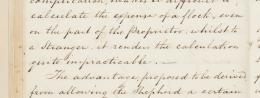 calculate the expense of a flock, even
on the part of the Proprietor, whilst to
a stranger it renders the calculation
quite impracticable.
The advantage proposed to be derived
from allowing the Shepherd a certain